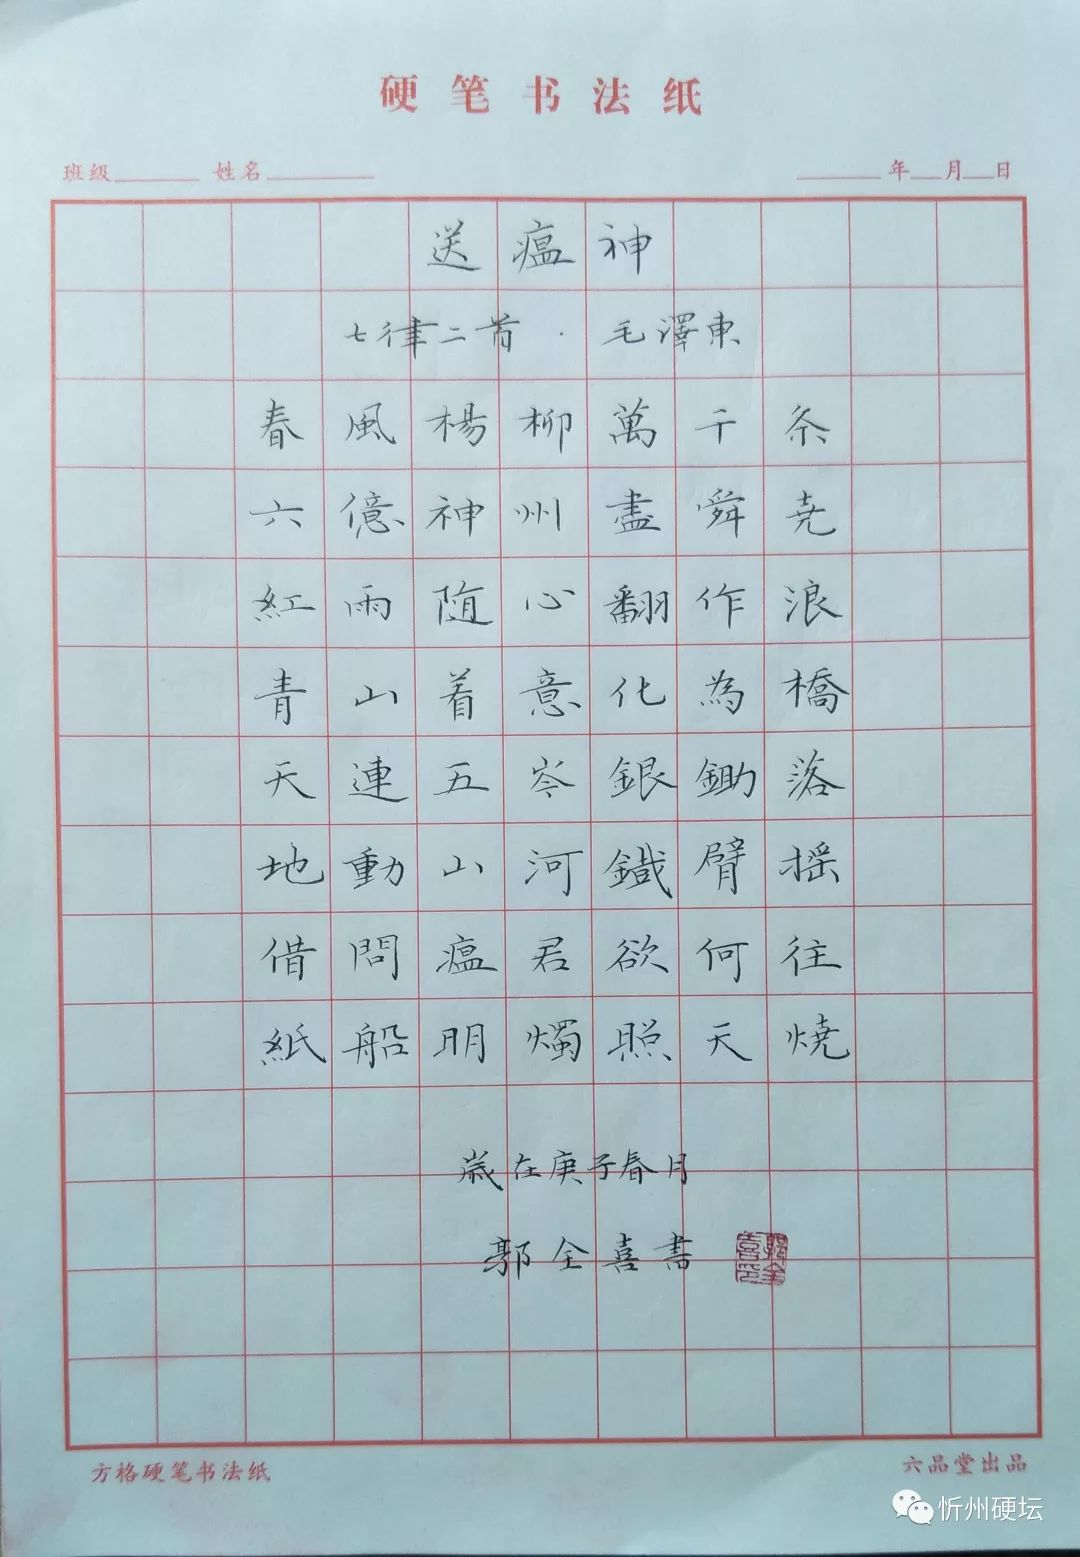 硬笔书法纸
班级 姓名 年 月 日
送瘟神
七律二首·毛澤東
春風楊柳萬千条
六億神州盡舜尧
紅雨随心翻作浪
青山着意化為橋
天連五岑銀鋤落
地動山河鐵臂摇
借問瘟君欲何往
紙船明燭照天燒
歳在庚子春月
郭全喜書
郭全喜印
方格硬笔书法纸 六品堂出品
忻州硬坛